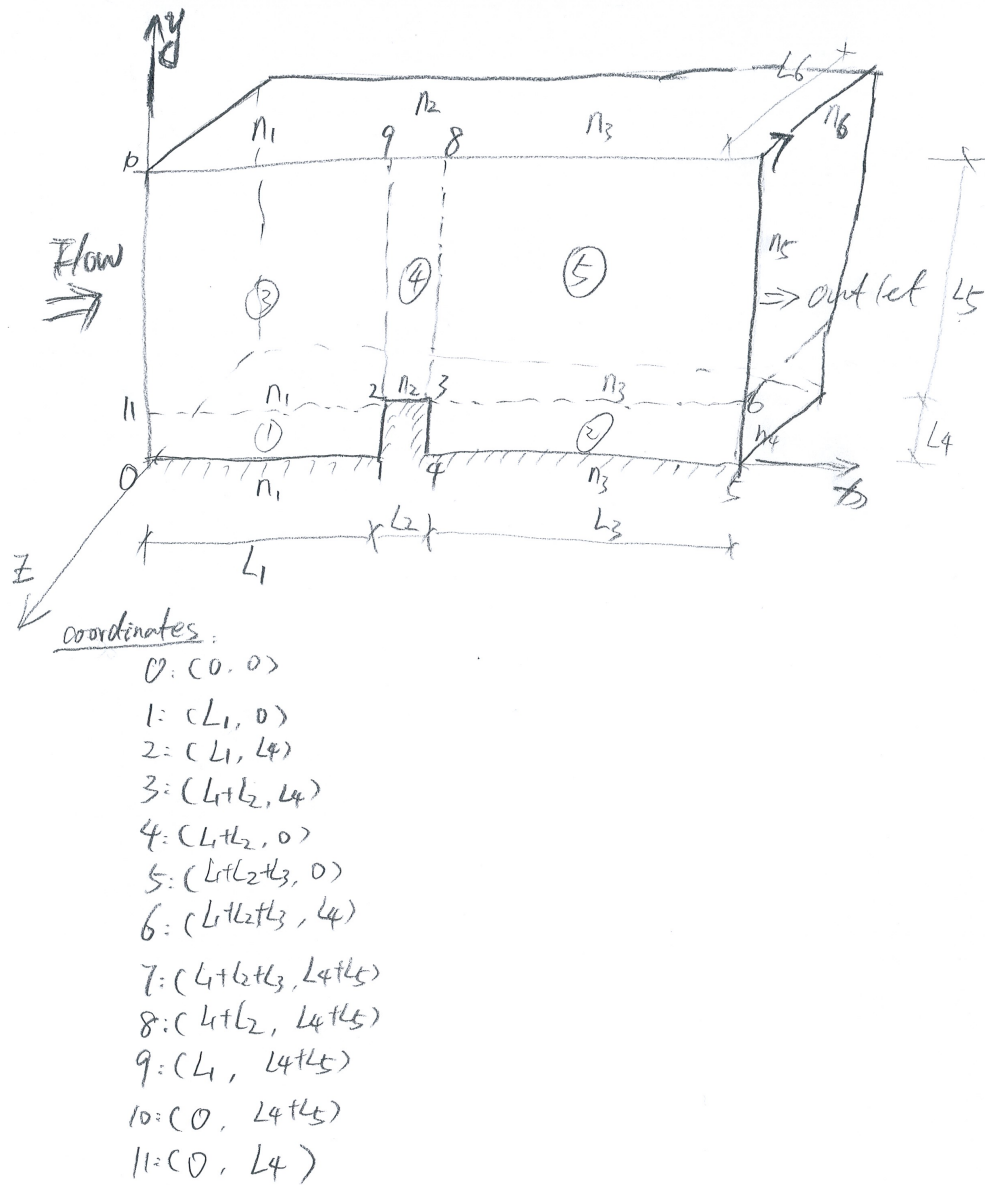 y
L6
n2
n6
n1
n3
9 8
10
n5
Flow
④
⑤
③
⇒ outlet
L5
n1
2 n2 3
n3
11
6
①
②
n4
L4
0
4
5
n1
n3
x
L2
L3
L1
Z
coordinates:
0: (0, 0)
1: (L1, 0)
2: (L1, L4)
3: (L1+L2, L4)
4: (L1+L2, 0)
5: (L1+L2+L3, 0)
6: (L1+L2+L3, L4)
7: (L1+L2+L3, L4+L5)
8: (L1+L2, L4+L5)
9: (L1, L4+L5)
10: (0, L4+L5)
11: (0, L4)